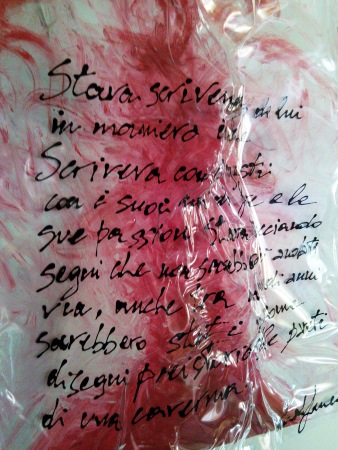 Stava scrivendo di lui
in maniera
Scriveva con gesti
con i suoi e le
sue passioni. Stava lasciando
segni che non sarebbero andati
via, anche tra anni
sarebbero stati come
disegni preistorici
di una caverna.